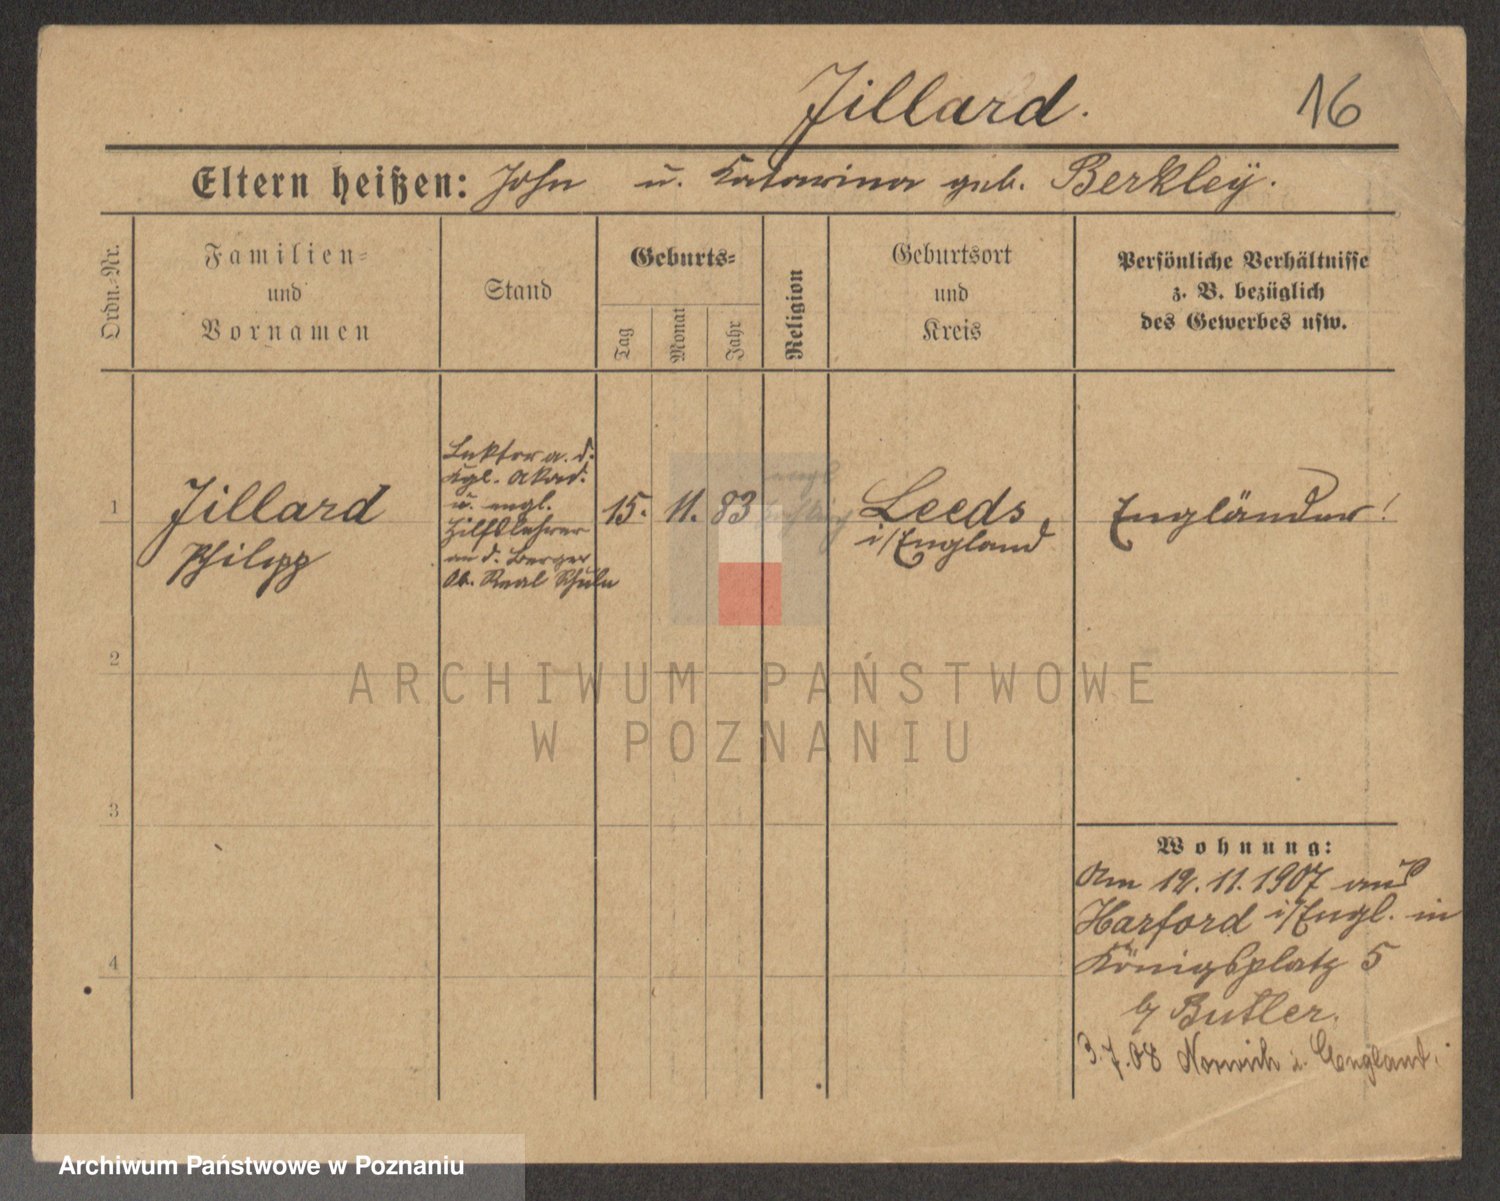 Jillard.
16
Eltern heißen: John u. Katarina geb. Berkley.
Ordn.-Nr.
Familien-
und
Vornamen
Stand
Geburts-
Tag
Monat
Jahr
Religion
Geburtsort
und
Kreis
Persönliche Verhältnisse
z. B. bezüglich
des Gewerbes usw.
1
Jillard
Philipp
Lektor a. d.
Kgl. Akad.
u. engl.
Hilfslehrer
an d. Berger
Ob. Real Schule
15. 11. 83
Leeds,
i/England
Engländer!
2
3
4
Wohnung:
Am 12.11.1907 aus
Harford i/Engl. in
Königsplatz 5
b/ Butler.
3.7.08 Norwich i. England.
ARCHIWUM PAŃSTWOWE
W POZNANIU
Archiwum Państwowe w Poznaniu